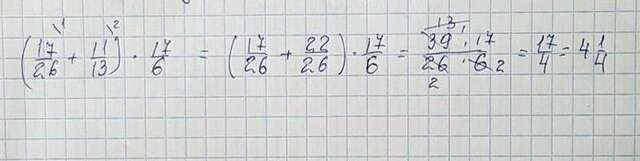 (17/26 \1 + 11/13 \2) · 17/6 = (17/26 + 22/26) · 17/6 = (39 13 1 · 17)/(26 2 · 6 2) = 17/4 = 4 1/4